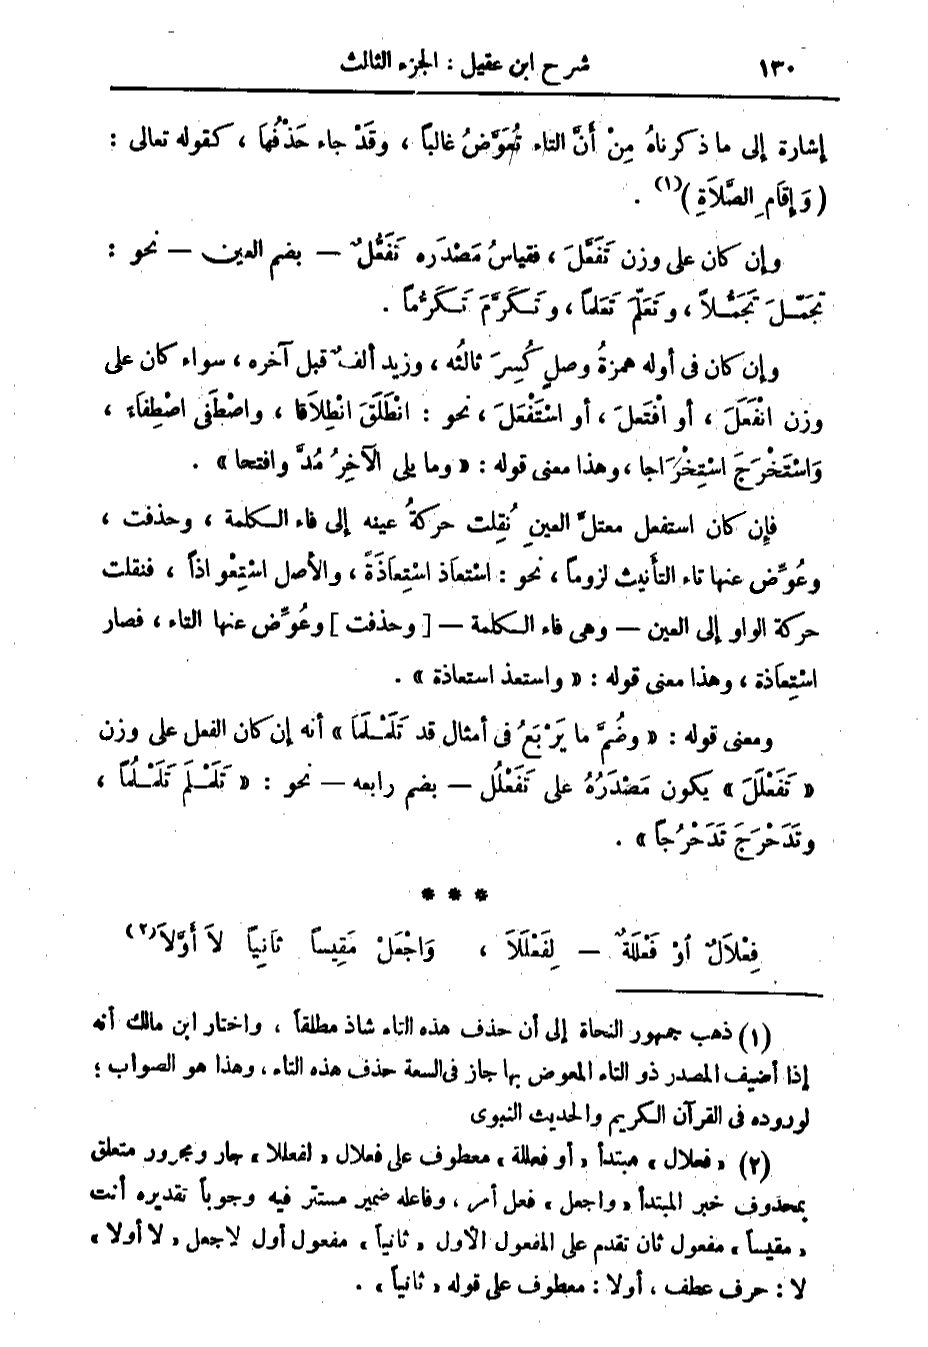 ١٣٠ شرح ابن عقيل : الجزء الثالث
إشارة إلى ما ذكرناهُ مِنْ أَنَّ التاء تُعَوَّضُ غالباً ، وقَدْ جاء حَذْفُهَا ، كقوله تعالى :
( وَإِقَامِ الصَّلَاةِ )(١) .
وإن كان على وزن تَفَعَّلَ ، فقياسُ مَصْدَره تَفَعُّلٌ — بضم العين — نحو :
تَجَمَّلَ تَجَمُّلاً ، وتَعَلَّمَ تَعَلماً ، وتَكَرَّمَ تَكَرُّماً .
وإن كان فى أوله همزةُ وصلٍ كُسِرَ ثالثُه ، وزيد ألفٌ قبل آخره ، سواء كان على
وزن انْفَعَلَ ، أو افْتَعلَ ، أو اسْتَفْعَلَ ، نحو : انْطَلَقَ انْطِلَاقا ، واصْطَفَى اصْطِفَاءً ،
وَاسْتَخْرَجَ اسْتِخْرَاجا ، وهذا معنى قوله : « وما يلى الآخِرُ مُدَّ وافتحا » .
فإن كان استفعل معتلَّ العينِ نُقِلت حركةُ عينه إلى فاء الكلمة ، وحذفت ،
وعُوِّض عنها تاء التأنيث لزوماً ، نحو : اسْتعاذ اسْتِعاذَةً ، والأصل اسْتِعْواذاً ، فنقلت
حركة الواو إلى العين — وهى فاء الكلمة — [ وحذفت ] وعُوِّض عنها التاء ، فصار
اسْتِعَاذة ، وهذا معنى قوله : « واستعذ استعاذة » .
ومعنى قوله : « وضُمَّ ما يَرْبَعُ فى أمثال قد تَلَمْلَمَا » أنه إن كان الفعل على وزن
« تَفَعْلَلَ » يكون مَصْدَرُهُ على تَفَعْلُل — بضم رابعه — نحو : « تَلَمْلَمَ تَلَمْلُمًا ،
وتَدَحْرَجَ تَدَحْرُجاً » .
* * *
فِعْلَالٌ اُوْ فَعْلَلَةٌ — لِفَعْلَلَا ، وَاجْعَلْ مَقِيساً ثَانِياً لاَ أَوَّلاَ(٢)
(١) ذهب جمهور النحاة إلى أن حذف هذه التاء شاذ مطلقاً ، واختار ابن مالك أنه
إذا أضيف المصدر ذو التاء المعوض بها جاز فى السعة حذف هذه التاء ، وهذا هو الصواب ؛
لوروده فى القرآن الكريم والحديث النبوى
(٢) « فعلال » مبتدأ « أو فعللة » معطوف على فعلال « لفعللا » جار ومجرور متعلق
بمحذوف خبر المبتدأ « واجعل » فعل أمر ، وفاعله ضمير مستتر فيه وجوباً تقديره أنت
« مقيساً » مفعول ثان تقدم على المفعول الأول « ثانياً » مفعول أول لاجعل « لا أولا »
لا : حرف عطف ، أولا : معطوف على قوله « ثانياً » .